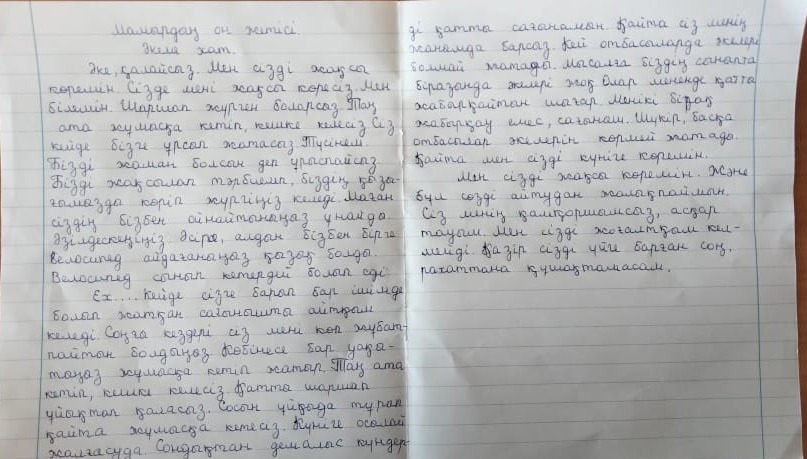 Мамырдың он жетісі.
Әкеме хат.
Әке, қалайсыз. Мен сізді жақсы
көремін. Сізде мені жақсы көресіз. Мен
білемін. Шаршап жүрген боларсыз. Таң
ата жұмысқа кетіп, кешке келесіз. Сіз
кейде бізге ұрсып жатасыз. Түсінем.
Бізді жаман болсын деп ұрыспайсыз.
Бізді жақсылап тәрбиелеп, біздің қызы-
ғымызды көріп жүргіңіз келеді. Маған
сіздің бізбен ойнайтыныңыз ұнайды.
Әзілдескеңіңіз. Әсіре, алдын бізбен бірге
велосипед айдағаныңыз қызық болды.
Велосипед сынып кетердей болып еді.
Ех.... Кейде сізге барып бар ішімде
болып жатқан сағынышты айтқым
келеді. Соңғы кездері сіз мені көп жұбат-
пайтын болдыңыз. Көбінесе бар уақы-
тыңыз жұмысқа кетіп жатыр. Таң ата
кетіп, кешке келесіз. Қатты шаршап
ұйықтап қаласыз. Сосын ұйқыда тұрып
қайта жұмысқа кетесіз. Күніге осылай
жалғасуда. Сондықтан демалыс күндер-
ді қатты сағынамын. Қайта сіз менің
жанымда барсыз. Кей отбасыларда әкелері
болмай жатады. Мысалға біздің сыныпта
біразында әкелері жоқ. Олар меніңде қатты
жабырқайтын шығар. Менікі бірақ
жабырқау емес, сағыныш. Шүкір, басқа
отбасылар әкелерін көрмей жатады.
Қайта мен сізді күніге көремін.
Мен сізді жақсы көремін. Және
бұл сөзді айтудан жалықпаймын.
Сіз менің қамқоршымсыз, асқар
тауым. Мен сізді жоғалтқым кел-
мейді. Қазір сізді үйге барған соң,
рахаттана құшақтамасам.